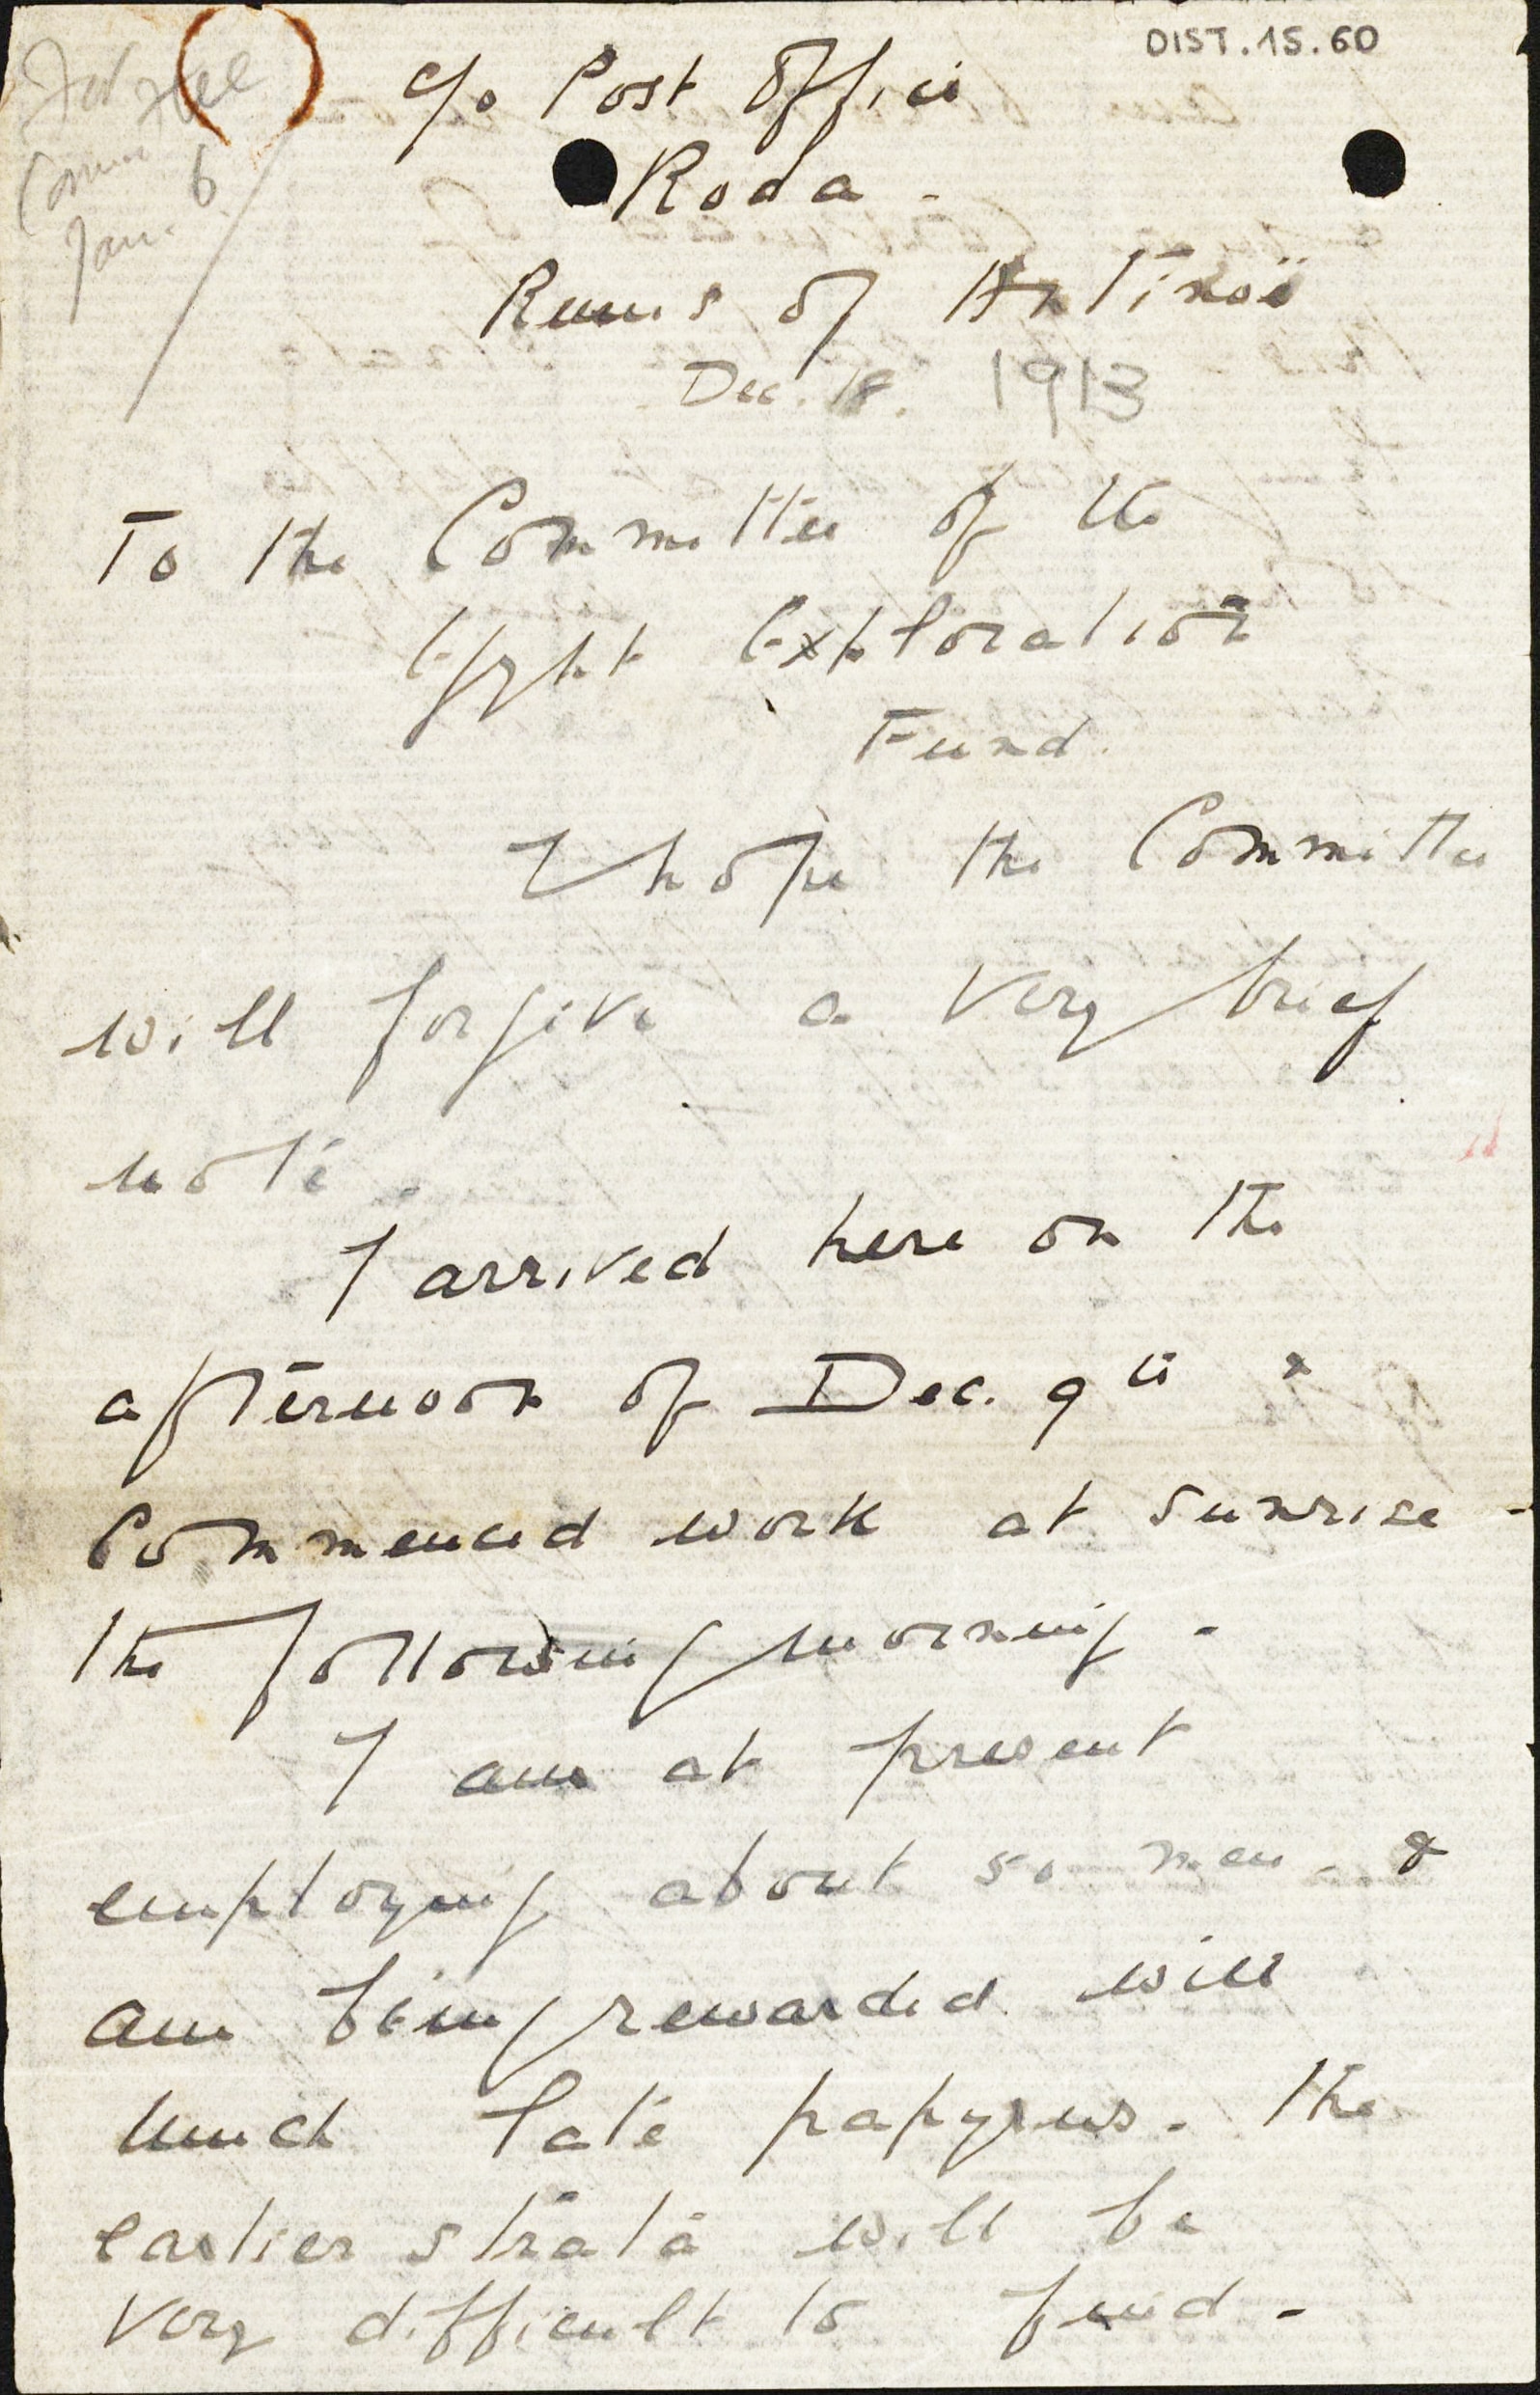 DIST.15.60
Comm
Jan. 6
c/o Post Office
Roda -
Ruins of Antinoë
Dec. 18. 1913
To the Committee of the
Egypt Exploration
Fund.
I hope the Committee
will forgive a very brief
note.
I arrived here on the
afternoon of Dec. 9th &
commenced work at sunrise -
the following morning -
I am at present
employing about 50 men - &
am being rewarded with
much late papyrus. The
earlier strata will be
very difficult to find -